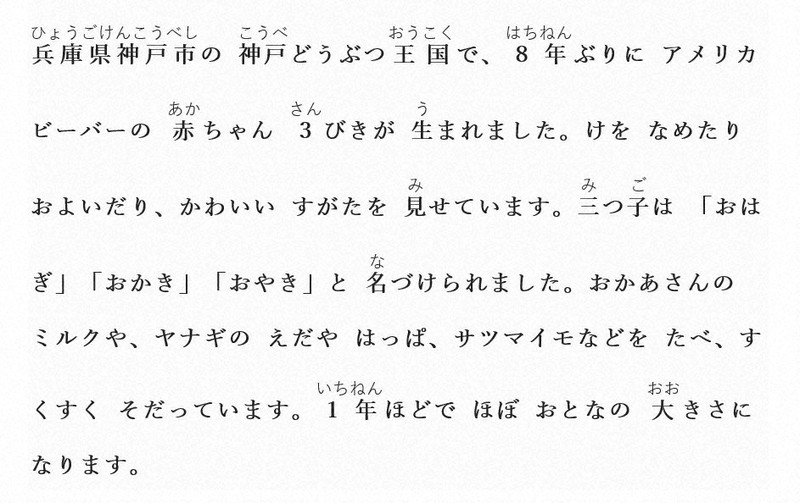 ひょうごけんこうべし こうべ おうこく はちねん
兵庫県神戸市の 神戸どうぶつ王国で、8年ぶりに アメリカ
あか さん う
ビーバーの 赤ちゃん 3びきが 生まれました。けを なめたり
み み ご
およいだり、かわいい すがたを 見せています。三つ子は 「おは
な
ぎ」「おかき」「おやき」と 名づけられました。おかあさんの
ミルクや、ヤナギの えだや はっぱ、サツマイモなどを たべ、す
いちねん おお
くすく そだっています。1年ほどで ほぼ おとなの 大きさに
なります。